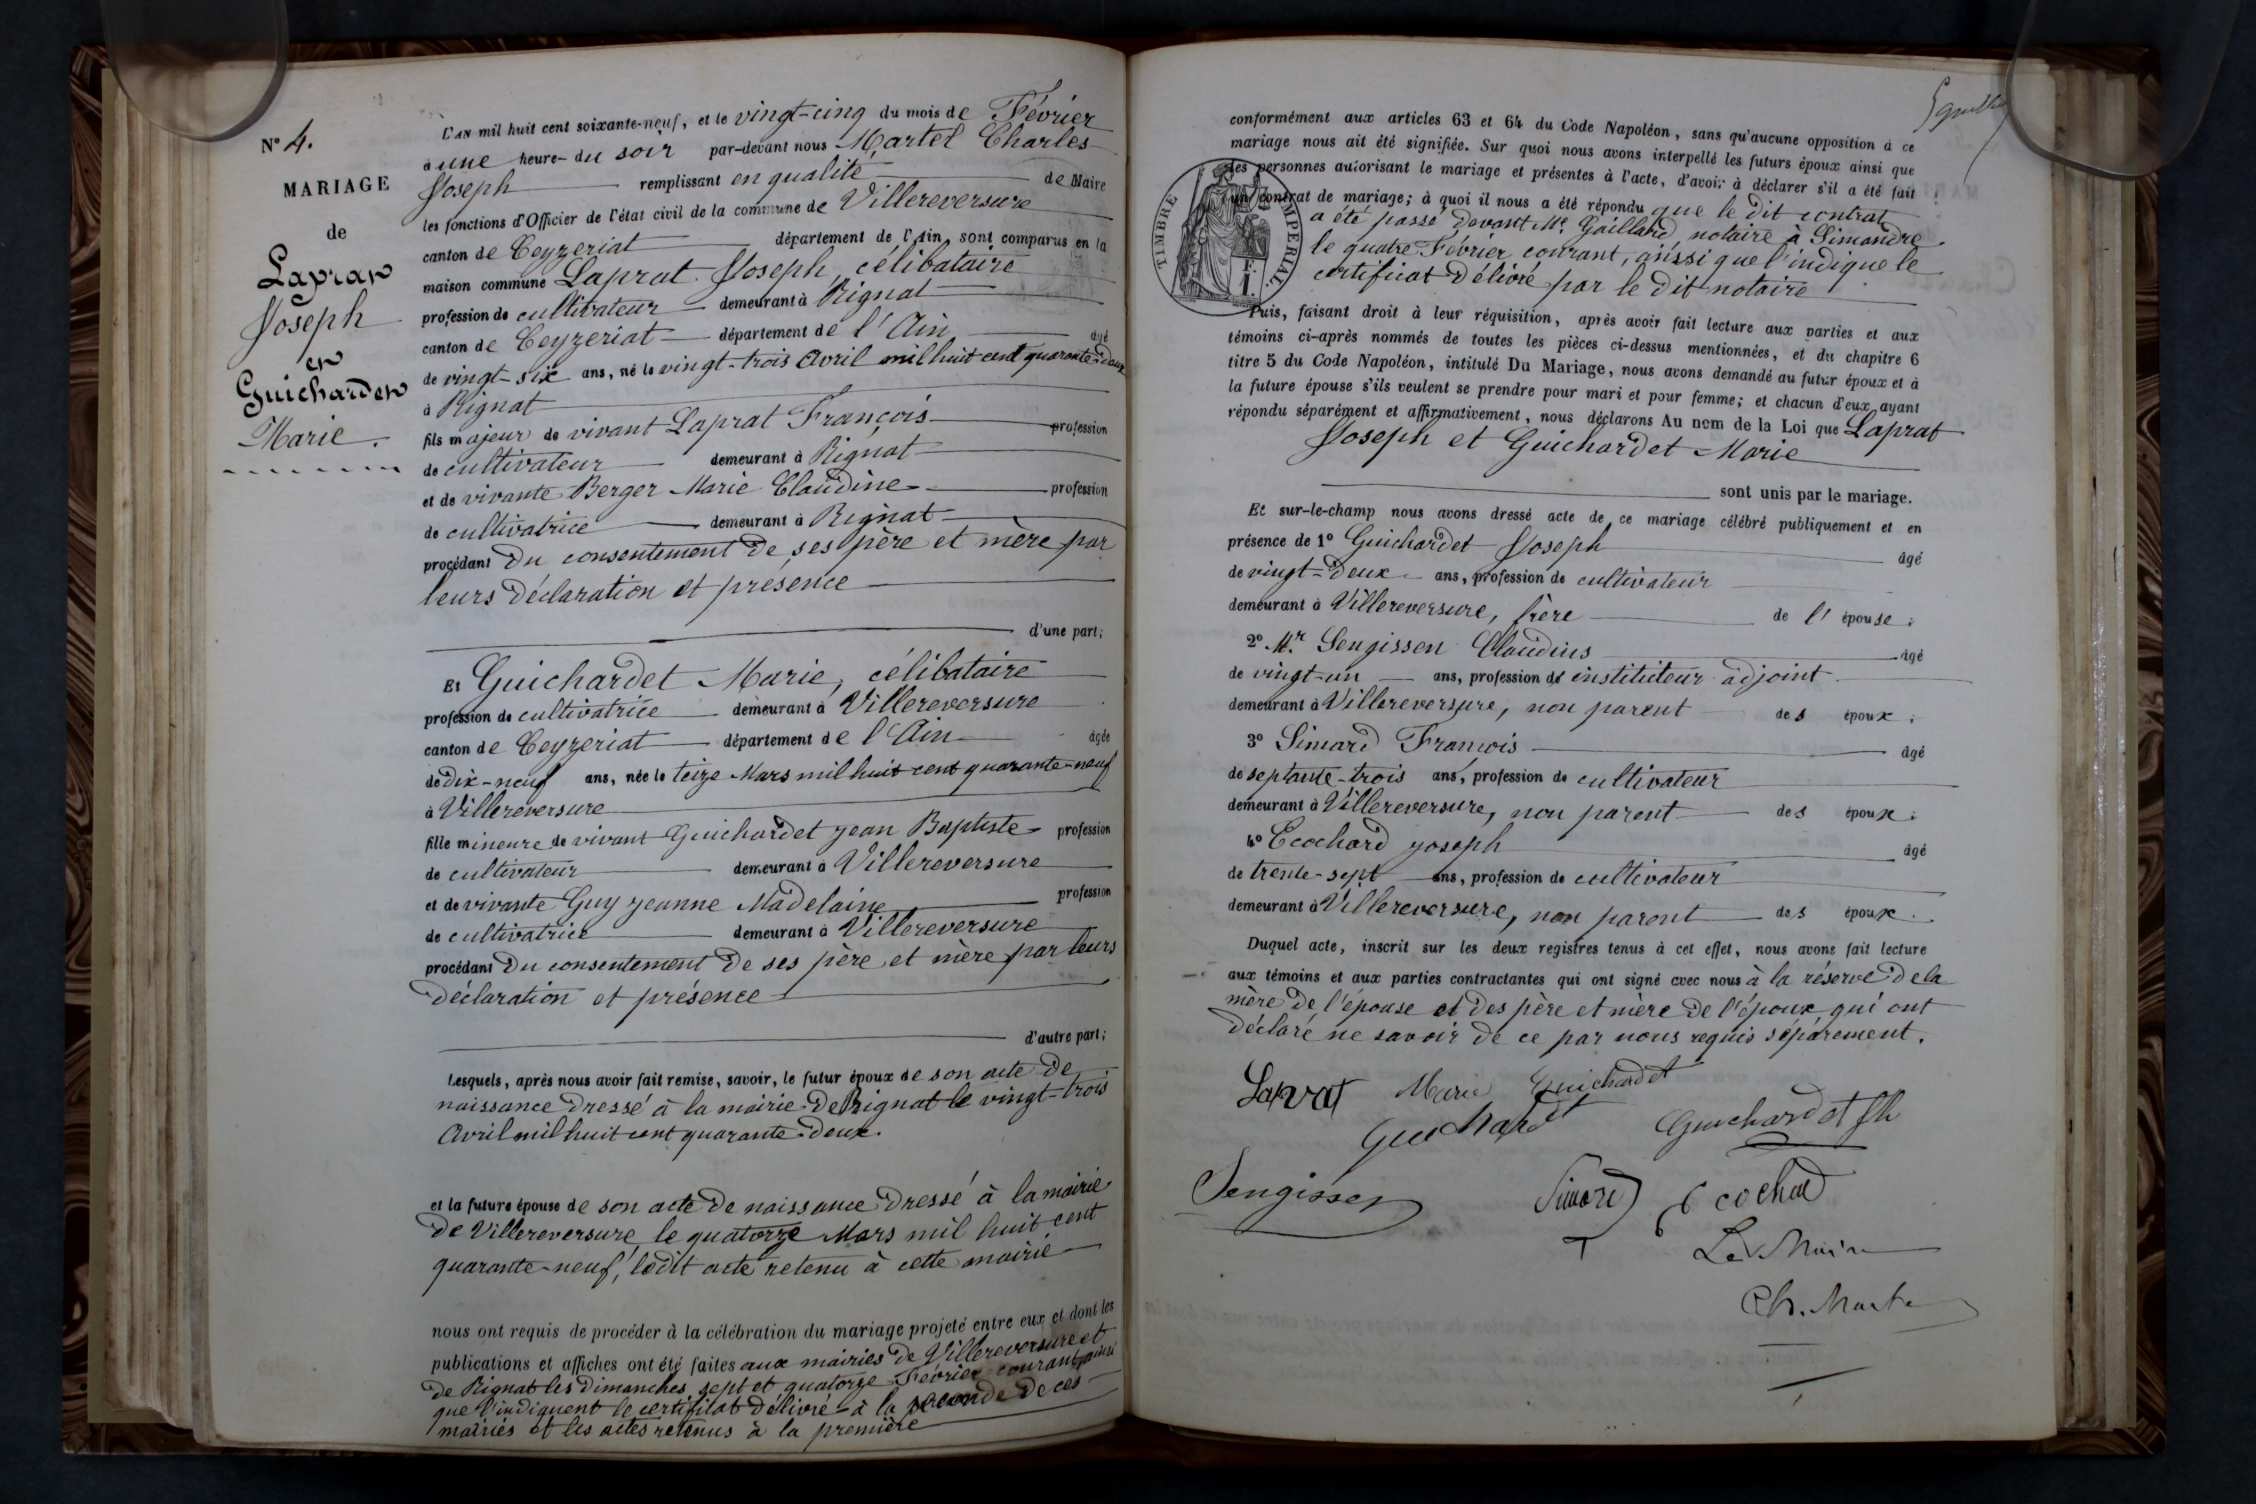 N° 4.
MARIAGE
de
Laprat
Joseph
et
Guichardet
Marie.
L'AN mil huit cent soixante-neuf, et le vingt-cinq du mois de Février
à une heure du soir par-devant nous Martel Charles
Joseph remplissant en qualité de Maire
les fonctions d'Officier de l'état civil de la commune de Villereversure
canton de Ceyzeriat département de l'Ain sont comparus en la
maison commune Laprat Joseph, célibataire
profession de cultivateur demeurant à Rignat
canton de Ceyzeriat département de l'Ain âgé
de vingt-six ans, né le vingt-trois Avril mil huit cent quarante-deux
à Rignat
fils majeur de vivant Laprat François profession
de cultivateur demeurant à Rignat
et de vivante Berger Marie Claudine profession
de cultivatrice demeurant à Rignat
procédant du consentement de ses père et mère par
leurs déclaration et présence
d'une part;
Et Guichardet Marie, célibataire
profession de cultivatrice demeurant à Villereversure
canton de Ceyzeriat département de l'Ain âgée
de dix-neuf ans, née le treize Mars mil huit cent quarante-neuf
à Villereversure
fille mineure de vivant Guichardet Jean Baptiste profession
de cultivateur demeurant à Villereversure
et de vivante Guy Jeanne Madelaine profession
de cultivatrice demeurant à Villereversure
procédant du consentement de ses père et mère par leurs
déclaration et présence
d'autre part;
Lesquels, après nous avoir fait remise, savoir, le futur époux de son acte de
naissance dressé à la mairie de Rignat le vingt-trois
Avril mil huit cent quarante-deux.
et la future épouse de son acte de naissance dressé à la mairie
de Villereversure le quatorze Mars mil huit cent
quarante-neuf, ledit acte retenu à cette mairie
nous ont requis de procéder à la célébration du mariage projeté entre eux et dont les
publications et affiches ont été faites aux mairies de Villereversure et
de Rignat les dimanches sept et quatorze Février courant, ainsi
que l'indiquent le certificat délivré à la seconde de ces
mairies et les actes retenus à la première
conformément aux articles 63 et 64 du Code Napoléon, sans qu'aucune opposition à ce
mariage nous ait été signifiée. Sur quoi nous avons interpellé les futurs époux ainsi que
les personnes autorisant le mariage et présentes à l'acte, d'avoir à déclarer s'il a été fait
un contrat de mariage; à quoi il nous a été répondu que le dit contrat
a été passé devant Me. Gaillard notaire à Simandre
le quatre Février courant, ainsi que l'indique le
certificat délivré par le dit notaire
TIMBRE IMPERIAL.
Puis, faisant droit à leur réquisition, après avoir fait lecture aux parties et aux
témoins ci-après nommés de toutes les pièces ci-dessus mentionnées, et du chapitre 6
titre 5 du Code Napoléon, intitulé Du Mariage, nous avons demandé au futur époux et à
la future épouse s'ils veulent se prendre pour mari et pour femme; et chacun d'eux ayant
répondu séparément et affirmativement, nous déclarons Au nom de la Loi que Laprat
Joseph et Guichardet Marie
sont unis par le mariage.
Et sur-le-champ nous avons dressé acte de ce mariage célébré publiquement et en
présence de 1° Guichardet Joseph âgé
de vingt-deux ans, profession de cultivateur
demeurant à Villereversure, frère de l'épouse;
2° Mr. Sengissen Claudius âgé
de vingt-un ans, profession de instituteur adjoint
demeurant à Villereversure, non parent des époux;
3° Simard François âgé
de septante-trois ans, profession de cultivateur
demeurant à Villereversure, non parent des époux;
4° Ecochard Joseph âgé
de trente-sept ans, profession de cultivateur
demeurant à Villereversure, non parent des époux.
Duquel acte, inscrit sur les deux registres tenus à cet effet, nous avons fait lecture
aux témoins et aux parties contractantes qui ont signé avec nous à la réserve de la
mère de l'épouse et des père et mère de l'époux qui ont
déclaré ne savoir de ce par nous requis séparement.
Laprat Marie Guichardet
Guichardet Guichardet fils
Sengissen Simard Ecochard
Le Maire
Ch. Martel